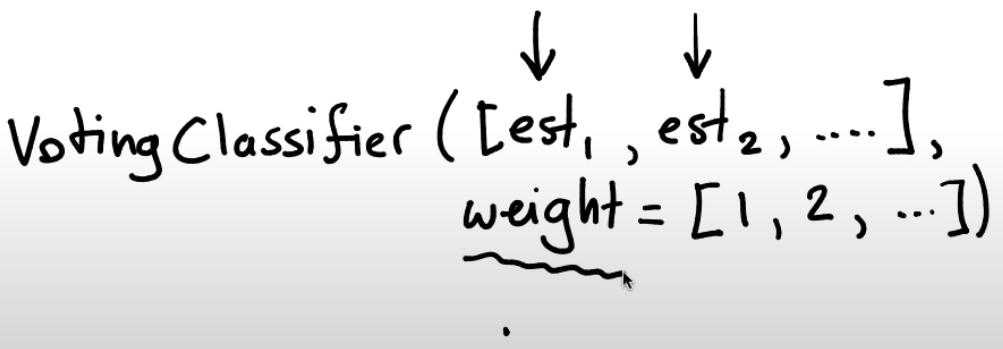 VotingClassifier ([est₁, est₂, ....],
weight = [1, 2, ...])